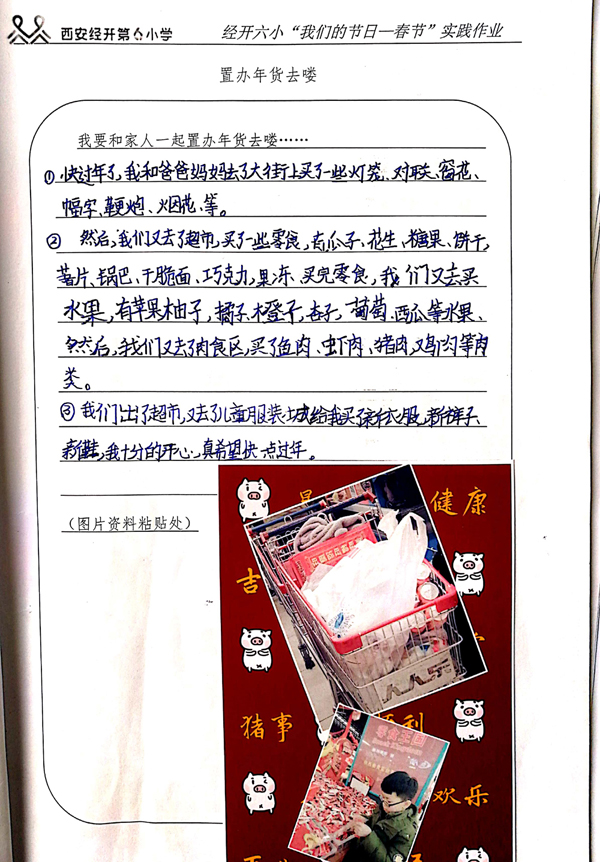 西安经开第六小学
经开六小“我们的节日—春节”实践作业
置办年货去喽
我要和家人一起置办年货去喽……
①快过年了,我和爸爸妈妈去了大街上买了一些灯笼、对联、窗花、
幅字、鞭炮、烟花、等。
② 然后,我们又去了超市,买了一些零食,有瓜子、花生、糖果、饼干,
薯片、锅巴、干脆面、巧克力,果冻、买完零食,我们又去买
水果,有苹果柚子,橘子、橙子,杏子,葡萄、西瓜等水果、
然后,我们又去了肉食区,买了鱼肉、虾肉、猪肉,鸡肉等肉
类。
③我们出了超市,又去了儿童服装城给我买了新衣服,新裤子、
新鞋,我十分的开心,真希望快点过年。
(图片资料粘贴处)
健康
吉
人人乐
猪事
顺利
欢乐